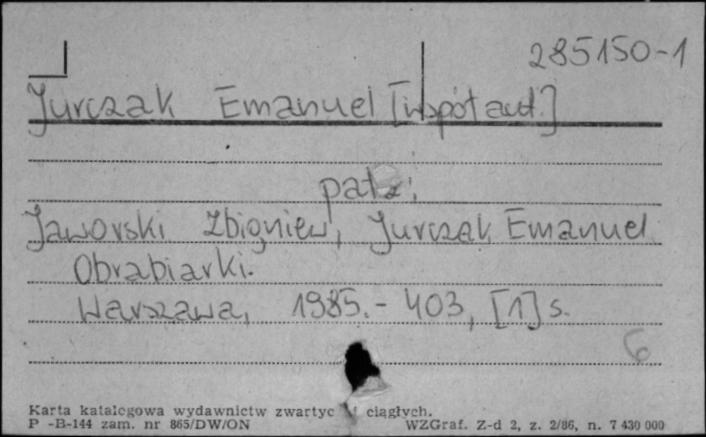 285150-1
Jurczak Emanuel [współaut.]
patz:
Jaworski Zbigniew, Jurczak Emanuel
Obrabiarki.
Warszawa, 1985. - 403, [1] s.
6
Karta katalogowa wydawnictw zwartyc i ciągłych.
P -B-144 zam. nr 865/DW/ON WZGraf. Z-d 2, z. 2/86, n. 7 430 000